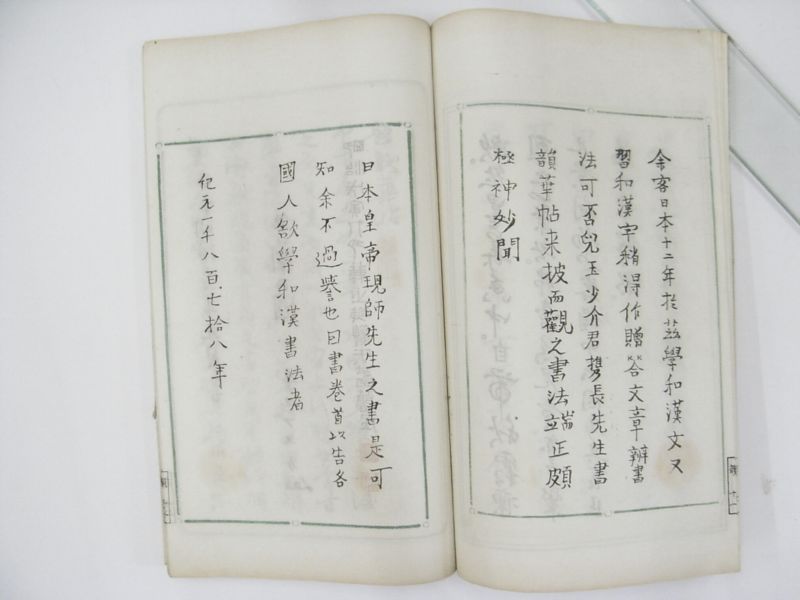 余客日本十二年於茲學和漢文又
習和漢字稍得作贈答文章辨書
法可否兒玉少介君携長先生書
韻華帖来披而觀之書法端正頗
極神妙聞
日本皇帝現師先生之書是可
知余不過誉也曰書巻首以告各
國人欲學和漢書法者
紀元一千八百七拾八年